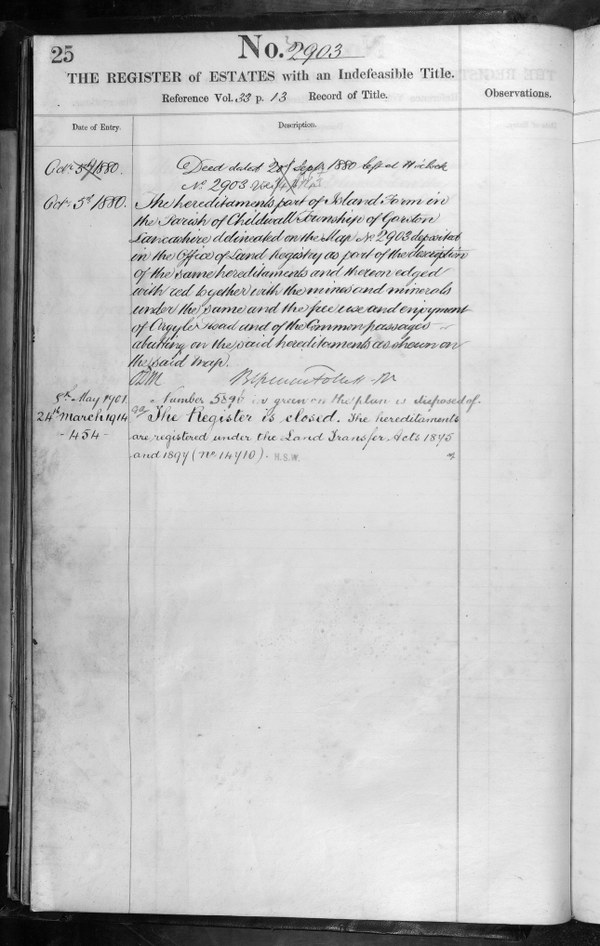 25
No. 2903
THE REGISTER of ESTATES with an Indefeasible Title.
Reference Vol. 33 p. 13 Record of Title.
Observations.
Date of Entry.
Description.
Octr. 5th 1880. Deed dated Septr 1880 left at o'clock
No 2903
Octr. 5th 1880. The hereditaments part of Island Farm in
the Parish of Childwall Township of Garston
Lancashire delineated on the Map No 2903 deposited
in the Office of Land Registry as part of the description
of the same hereditaments and thereon edged
with red together with the mines and minerals
under the same and the free use and enjoyment
of Argyle Road and of the Common passages
abutting on the said hereditaments as shewn on
the said map.
Follett
8th May 1901. Number is green on the plan is disposed of.
24th March 1914 The Register is closed. The hereditaments
-454- are registered under the Land Transfer Acts 1875
and 1897 (No 14710). H.S.W.